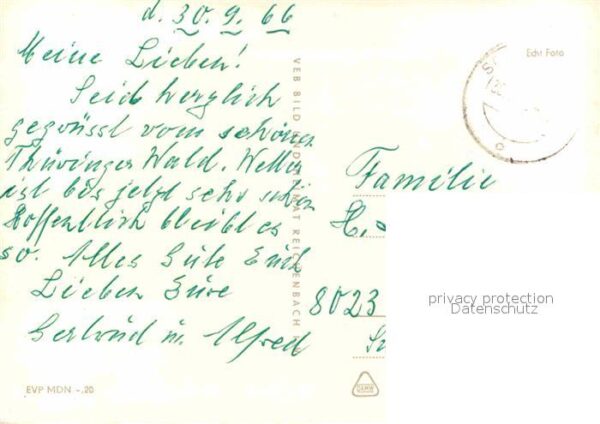 d. 30.9.66
Meine Lieben!
Seid herzlich
gegrüsst vom schönen
Thüringer Wald. Wetter
ist bis jetzt sehr schön
Hoffentlich bleibt es
so. Alles Gute Euch
Lieben Eure
Gertrud u. Alfred
VEB BILD UND HEIMAT REICHENBACH
EVP MDN -.20
Echt Foto
Familie
H.
8023
privacy protection
Datenschutz